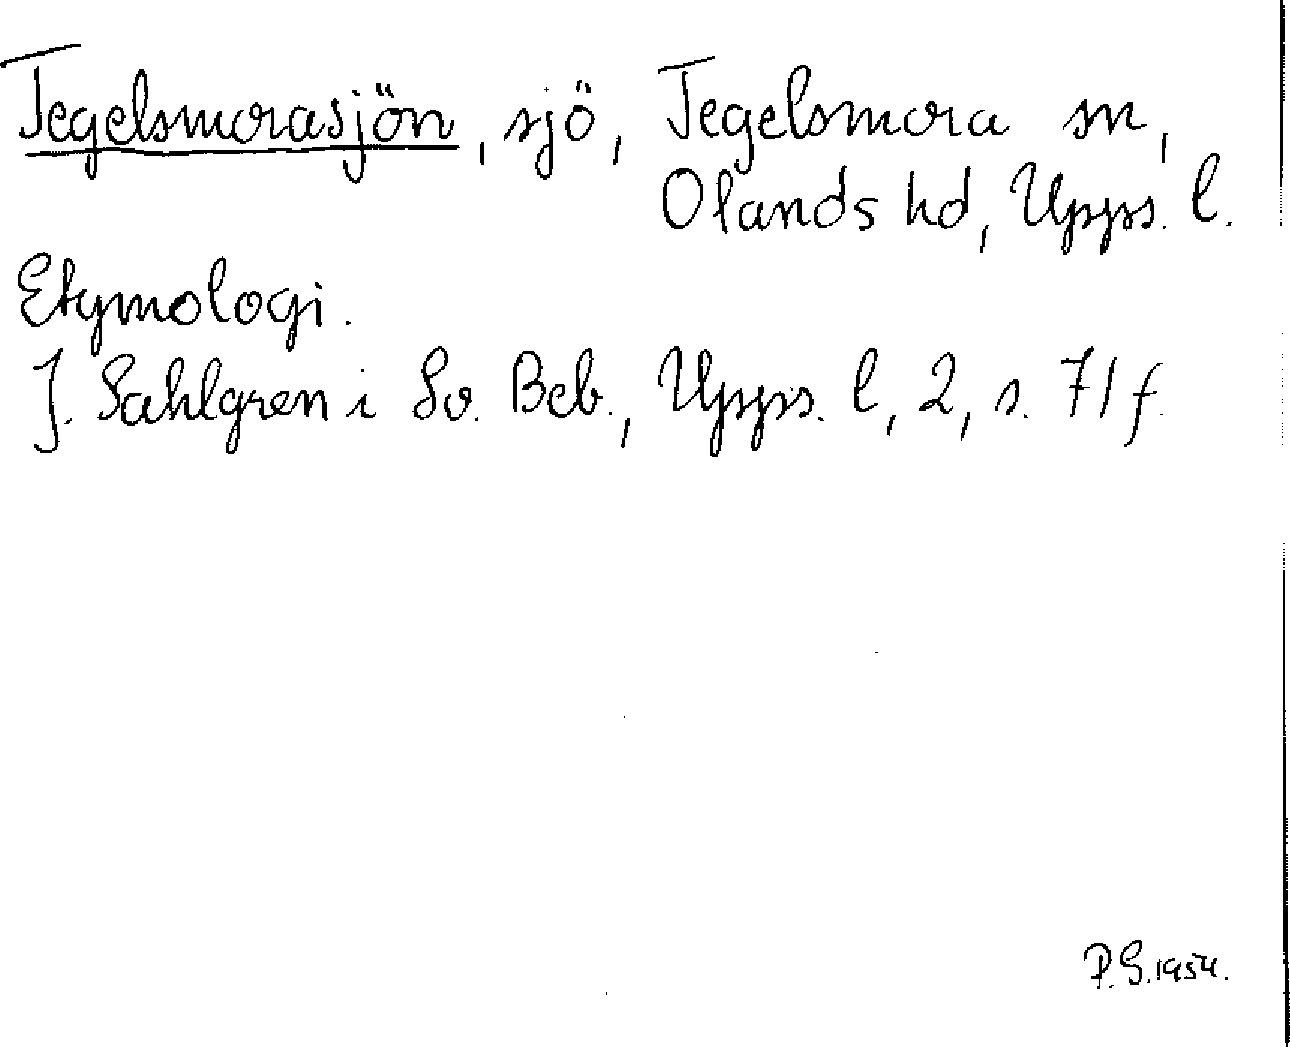 Tegelsmorasjön, sjö, Tegelsmora sn,
Olands hd, Upps. l.
Etymologi.
J. Sahlgren i Sv. Beb., Upps. l, 2, s. 71 f.
P.G. 1954.